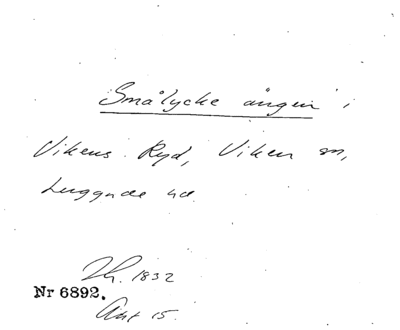 Smålycke ängen i
Vikens Ryd, Viken sn,
Luggude hd.
1832
Nr 6892.
Akt 15.